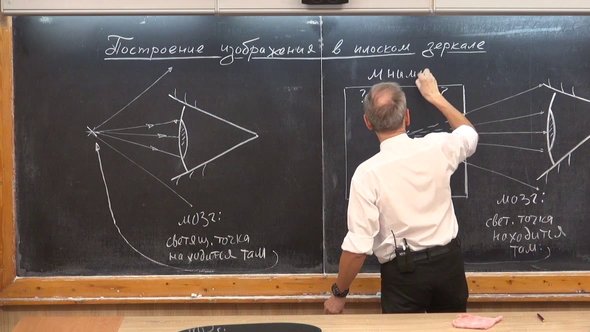 Построение изображения в плоском зеркале
мним
?
?
мозг:
светящ. точка
находится там
мозг:
свет. точка
находится
там